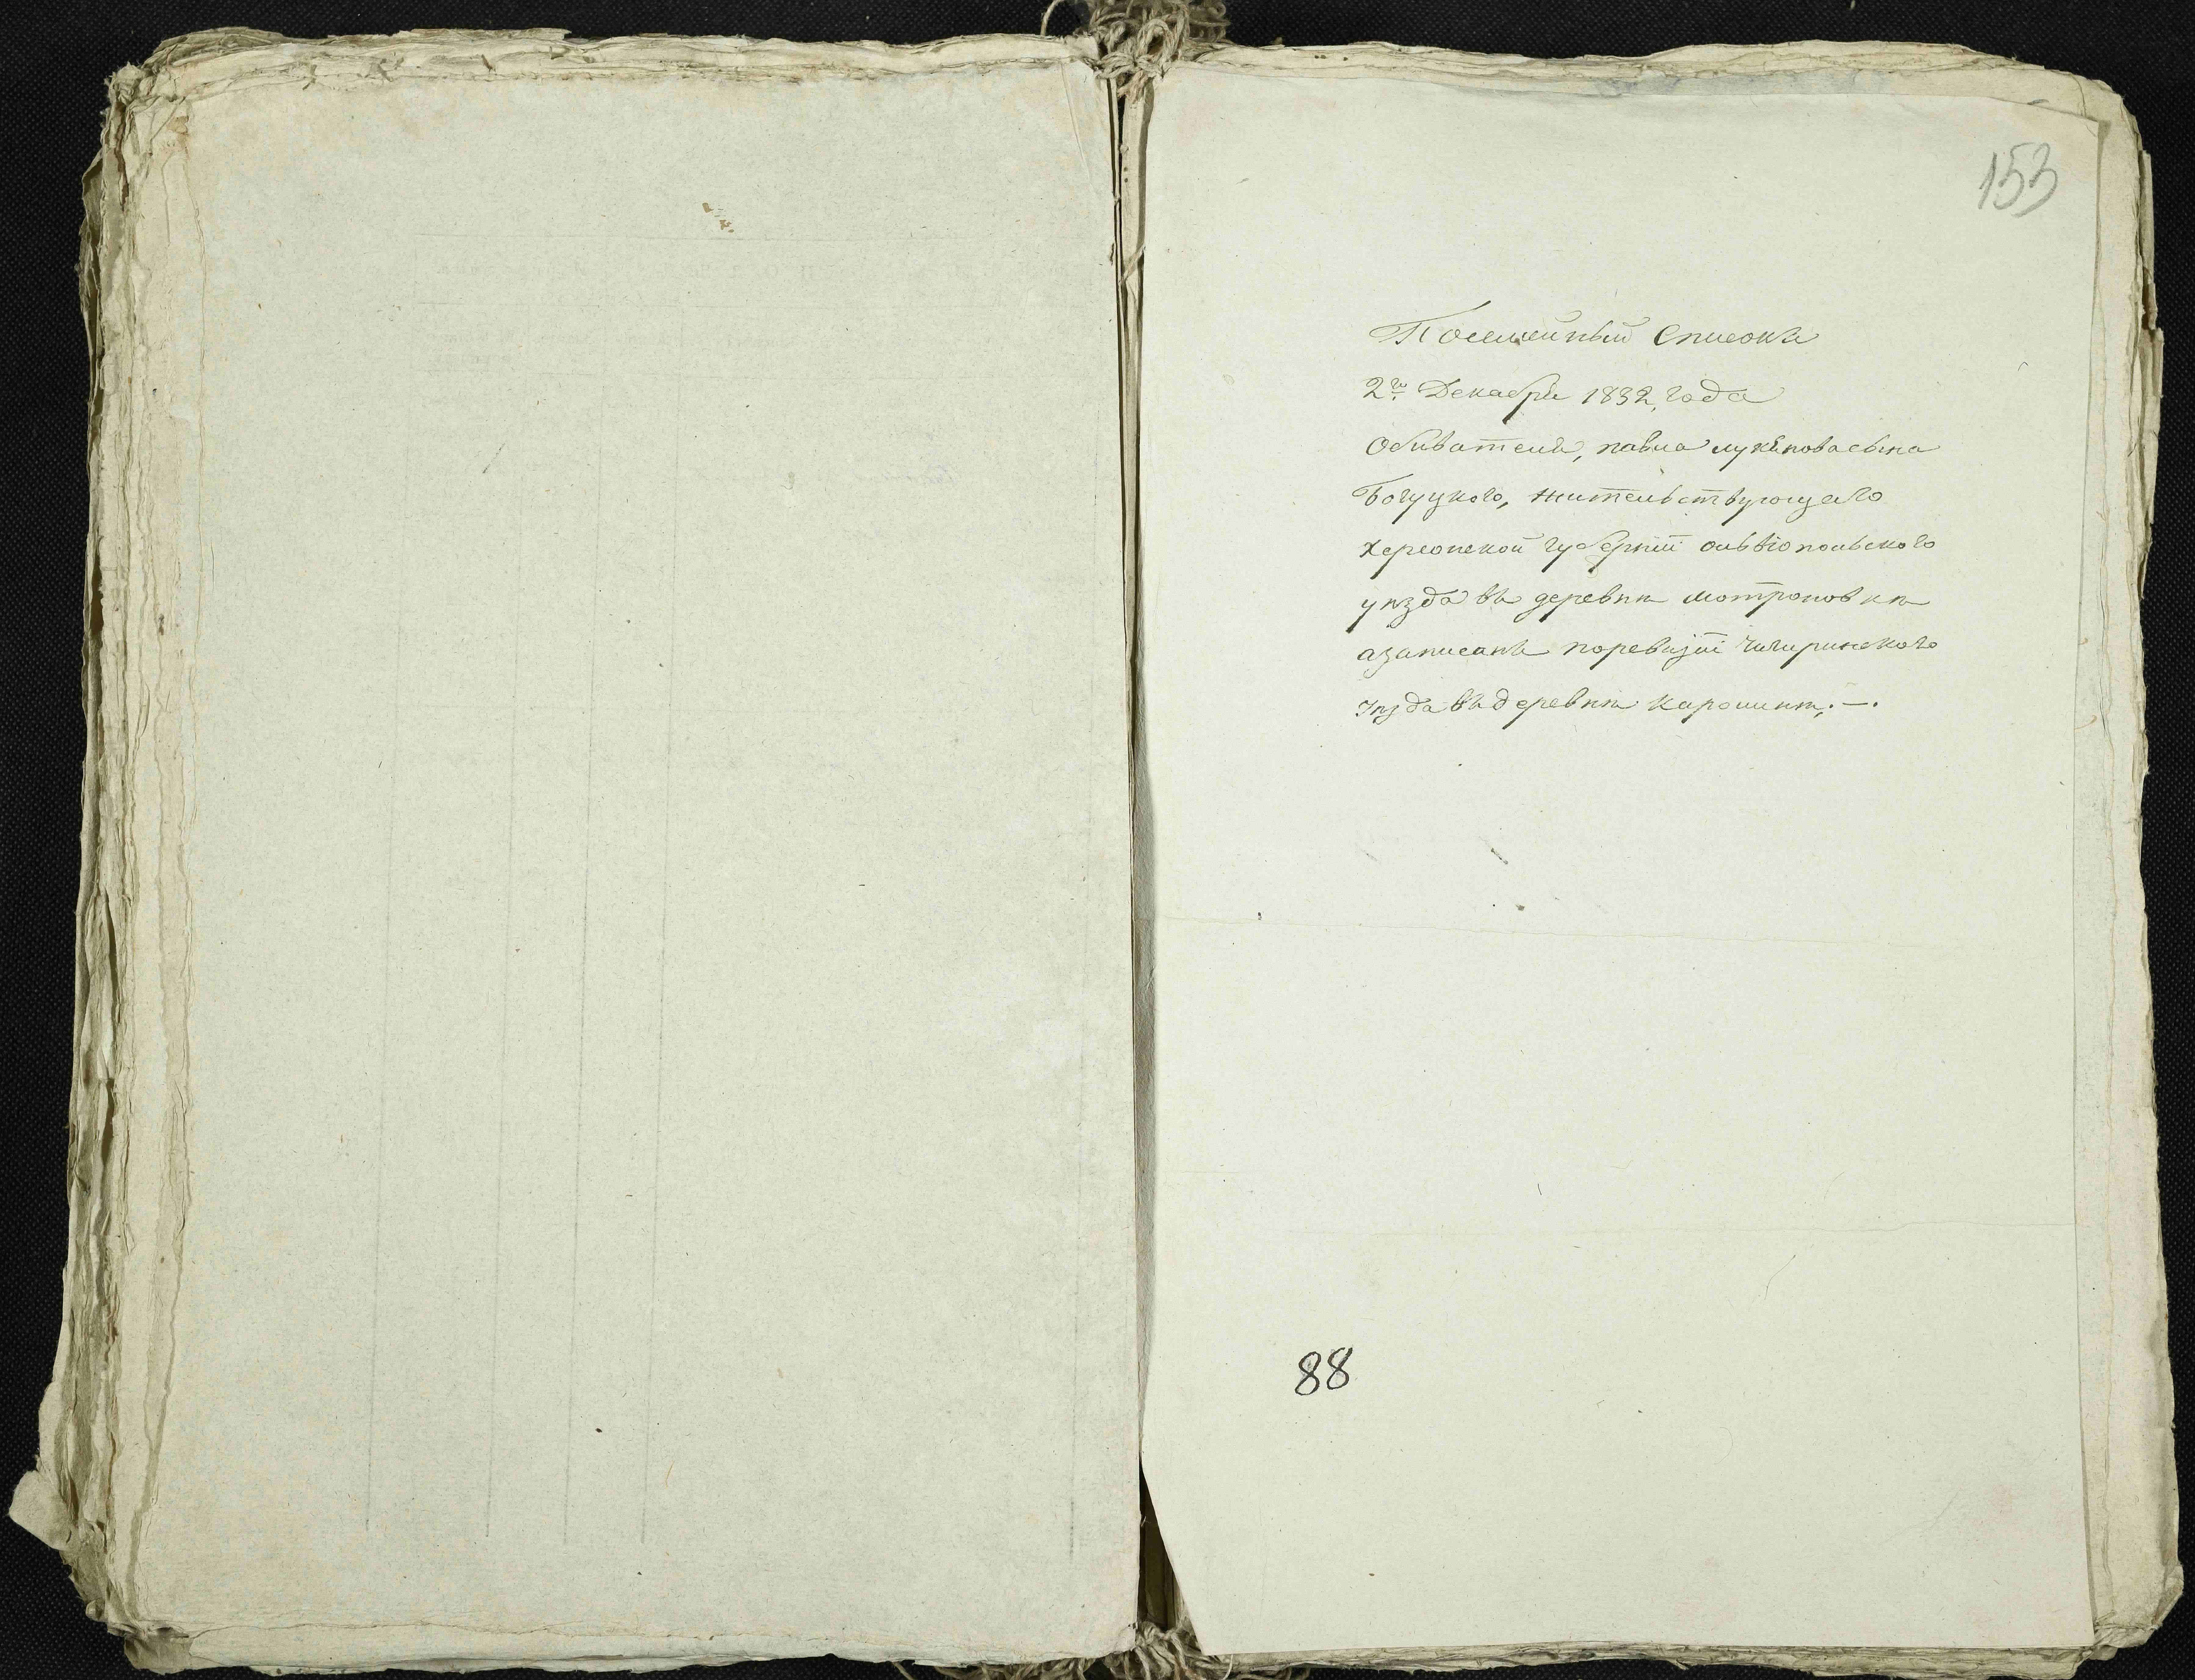 153
Посемейный Списокъ
2го Декабря 1832, года
Обивателя, павла лукянова сына
Богуцкого, жительствующаго
херсонской губернии ольвiопольского
уѣзда въ деревнѣ мотроновкѣ
азаписанъ поревизiи чигиринского
уѣзда въ деревнѣ
88